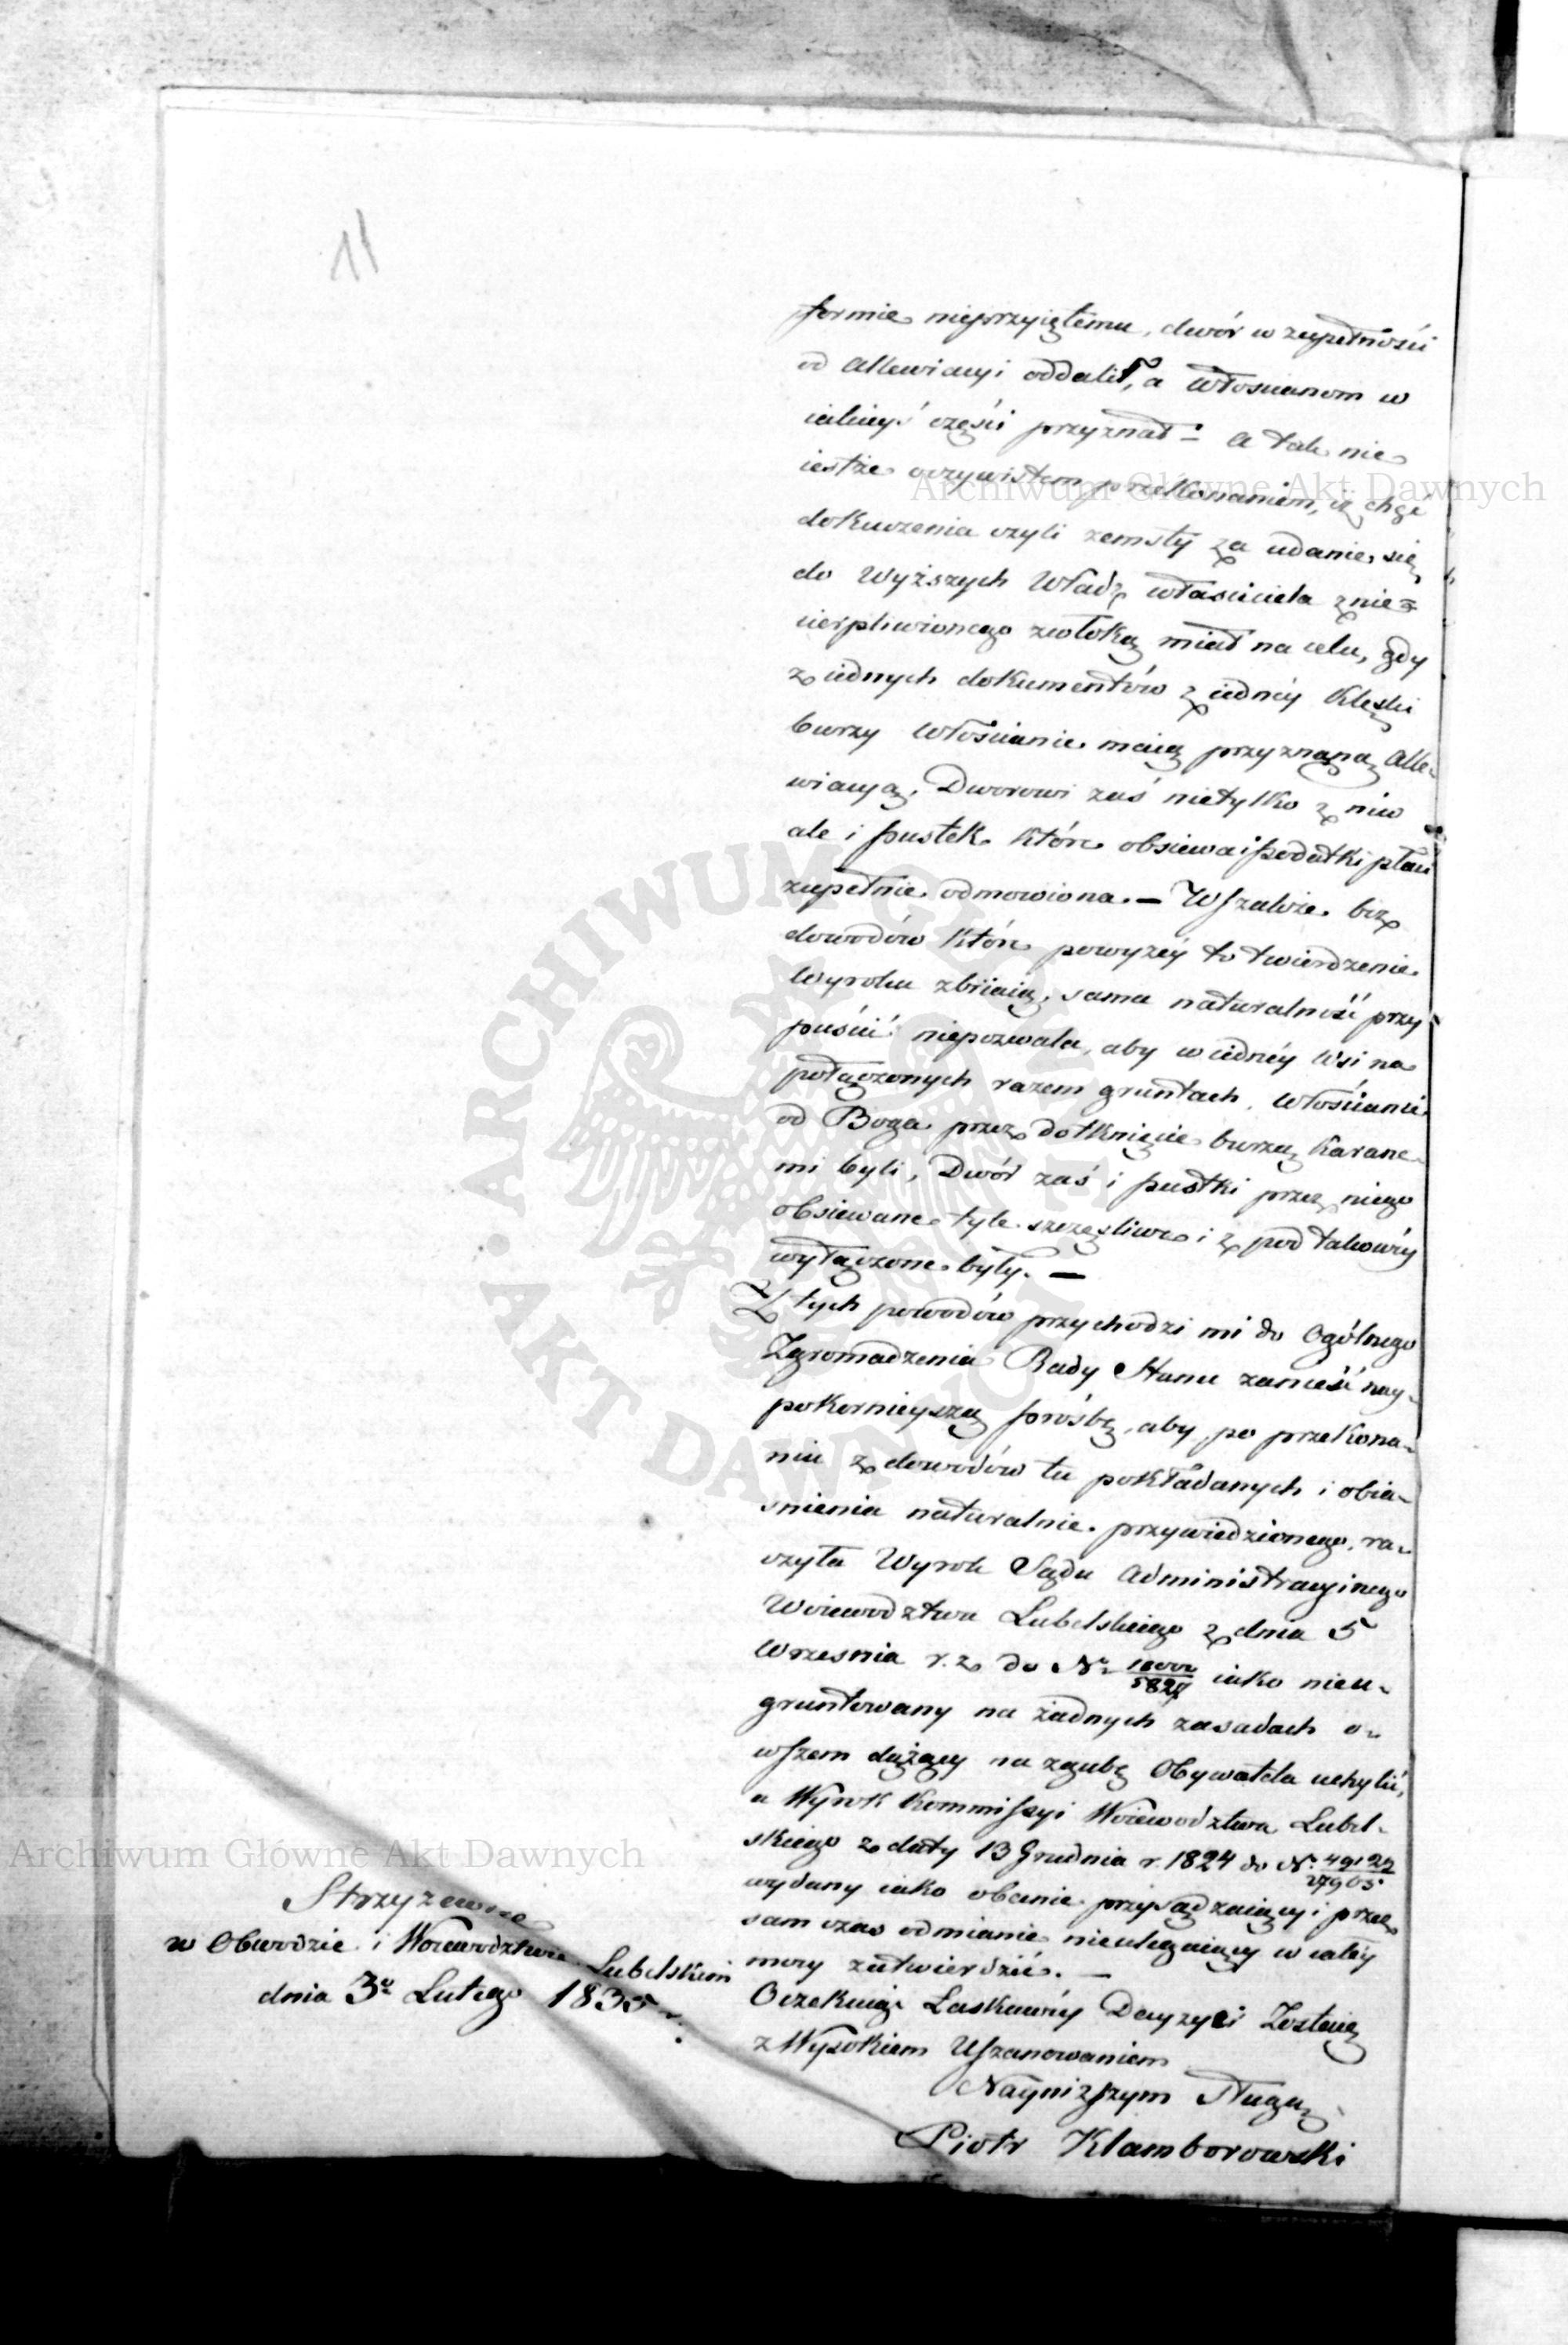 11
formie nieprzyiętemu, dwór w zupełności
od Allewiacyi oddalił, a Włościanom w
iakieyś części przyznał – A tak nie
iestże oczywistem przekonaniem, iż chęć
dokuczenia czyli zemsty za udanie się
do Wyższych Władz właściciela znie=
cierpliwionego zwłoką miał na celu, gdy
z iednych dokumentów z iednéy Klęski
burzy Włościanie maią przyznaną Alle-
wiacyą, Dworowi zaś nietylko z niw
ale i pustek które obsiewa i podatki płaci
zupełnie odmowiona. – Wszakże bez
dowodów które powyżéy to twierdzenie
Wyroku zbiiaią, sama naturalność przy
puścić niepozwala, aby w iednéy Wsi na
połączonych razem gruntach, Włościanie
od Boga przez dotknięcie burzą Karane-
mi byli, Dwór zaś i pustki przez niego
obsiewane tyle szczęśliwe i z pod takowéy
wyłączone były. –
Z tych powodów przychodzi mi do Ogólnego
Zgromadzenia Rady Stanu zanieść nay-
pokornieyszą prośbę, aby po przekona-
niu z dowodów tu pokładanych i obia-
snienia naturalnie przywiedzionego, ra-
czyła Wyrok Sądu Administracyinego
Woiewodztwa Lubelskiego z dnia 5
Wrzesnia r. z. do No iako nieu-
gruntowany na żadnych zasadach o-
wszem dążący na zgubę Obywatela uchylić,
a Wyrok Kommissyi Woiewodztwa Lubel-
skiego z daty 13 Grudnia r. 1824 do No
wydany iako obecnie przysądzaiący i przez
sam czas odmianie nieulegaiący w całéy
mocy zatwierdzić. –
Oczekuiąc Łaskawéy Decyzyi Zostaię
z Wysokiem Uszanowaniem
Nayniższym Sługą
Piotr Klamborowski
Strzyżewice
w Obwodzie i Woiewodztwie Lubelskiem
dnia 3o Lutego 1835 r.
Archiwum Główne Akt Dawnych
Archiwum Główne Akt Dawnych
ARCHIWUM GŁÓWNE AKT DAWNYCH